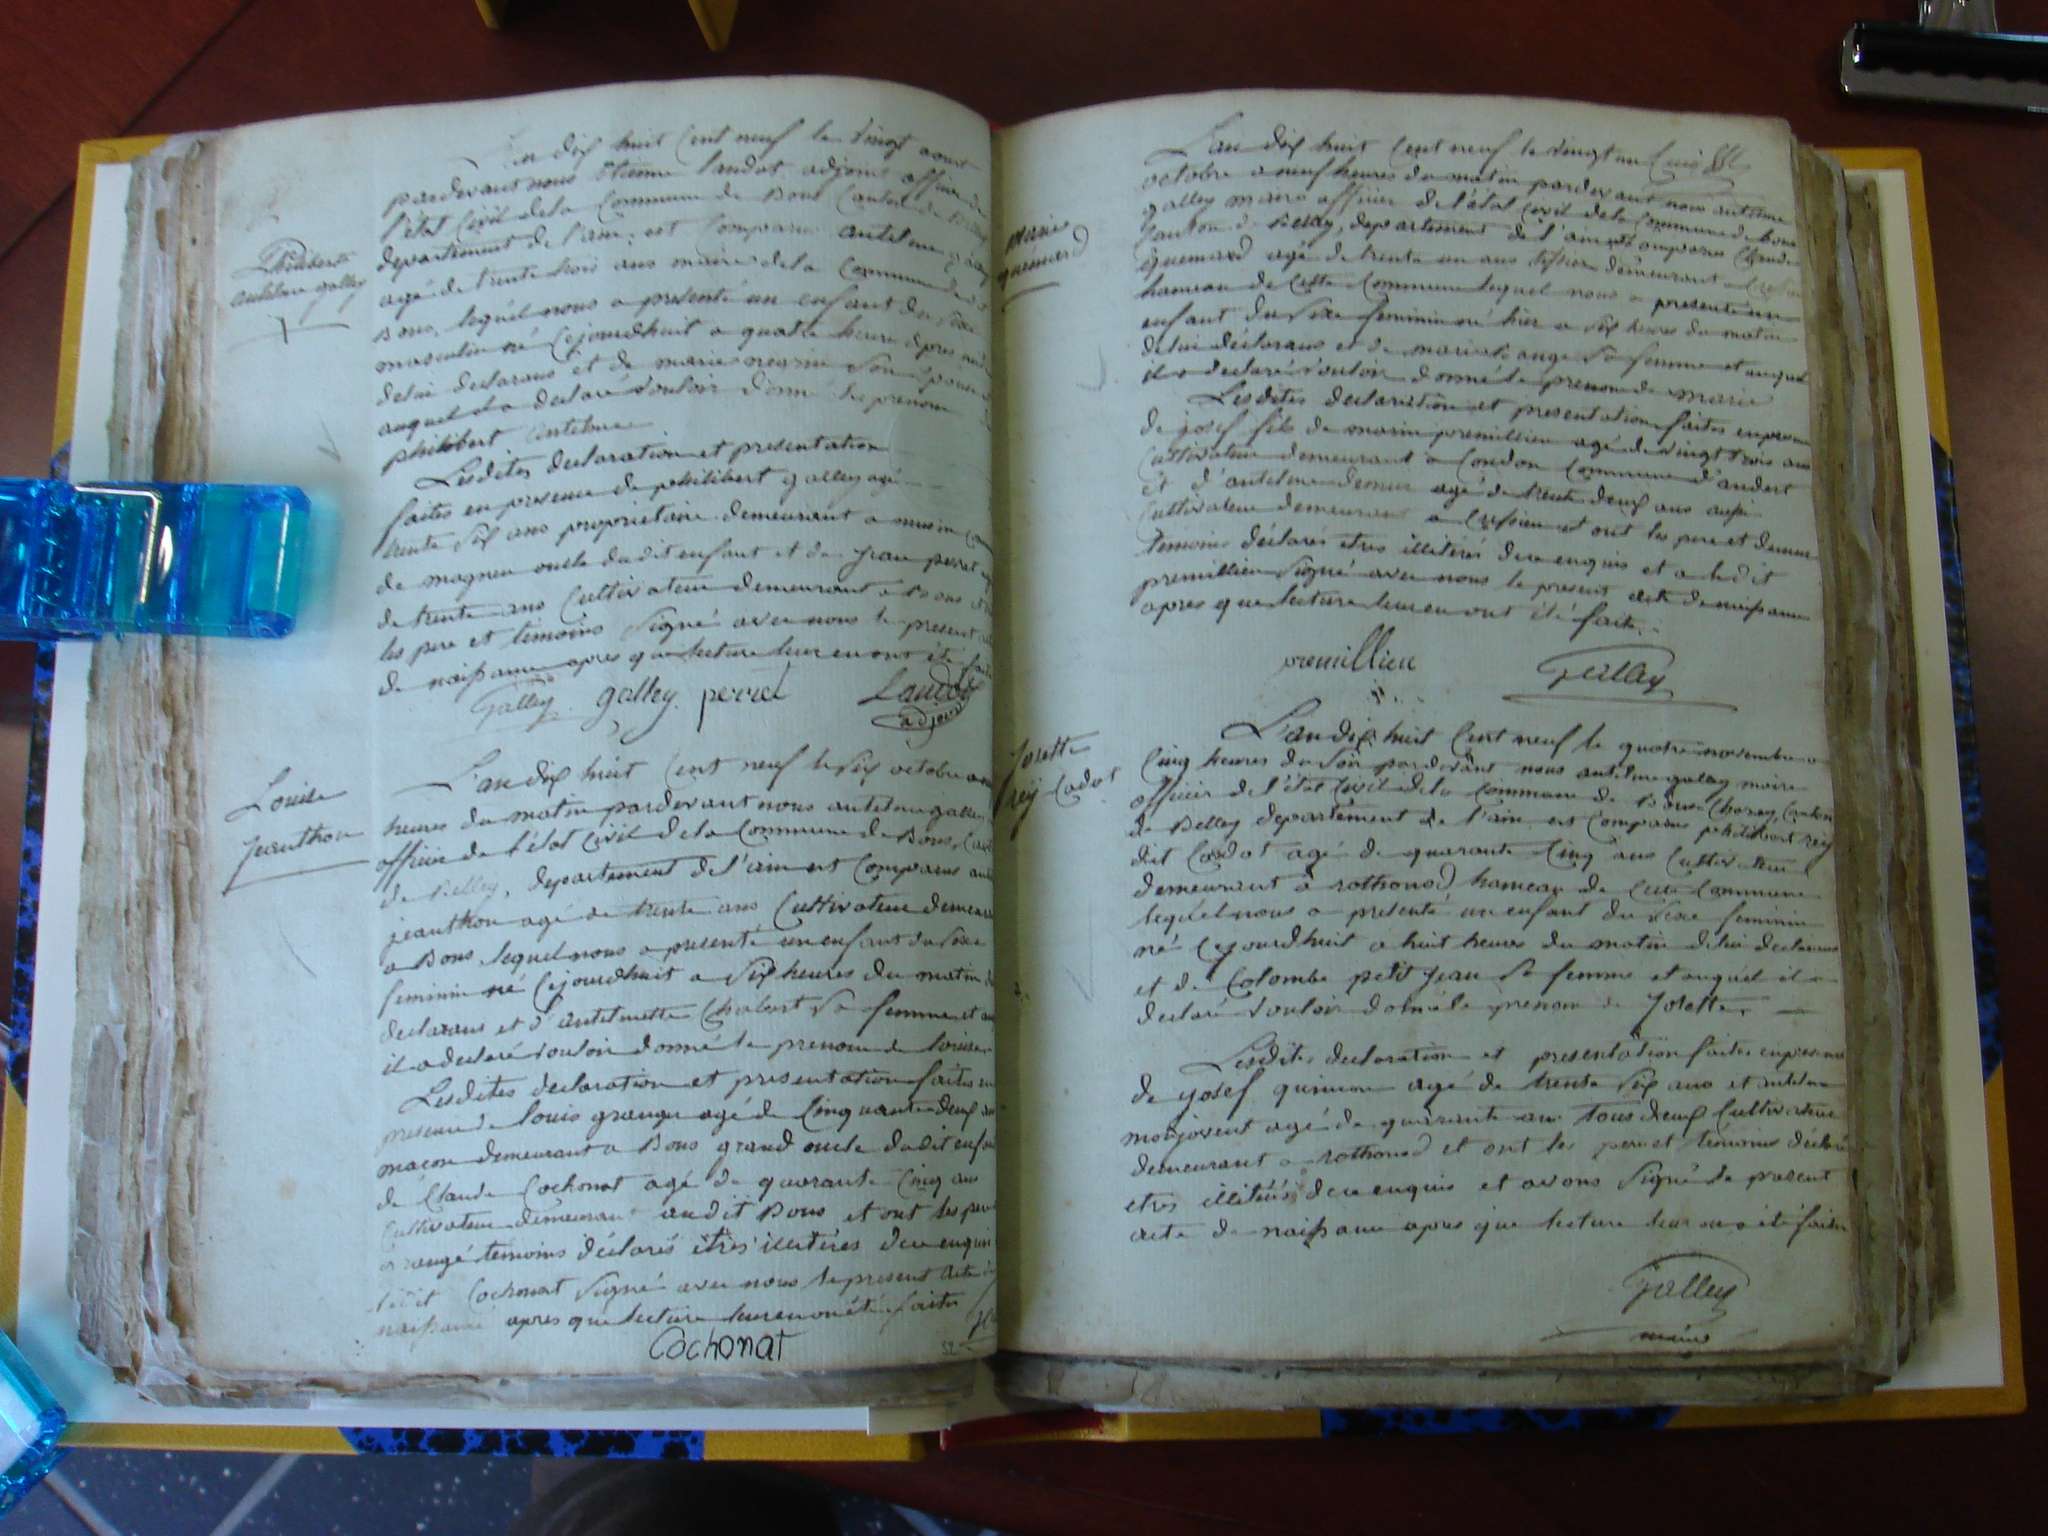 Philibert
antelme galley
L'an dix huit Cent neuf le vingt aout
pardevant nous Etienne Landot adjoint officier de
l'état Civil de la Commune de Bons Canton de Belley
departement de l'ain, est Comparu antelme galley
agé de trente trois ans maire de la Commune de
Bons, lequel nous a presenté un enfant du sexe
masculin né Cejourdhuit a quatre heure apres midi
de lui declarans et de marie son épouse
auquel il a declaré vouloir donné les prenom
philibert antelme
Lesdites declaration et presentation
faites en presence de philibert galley agé
trente six ans proprietaire demeurant a musin
de magnieu oncle dudit enfant et de jean perret agé
de trente ans Cultivateur demeurant a Bons
les pere et temoins signé avec nous le present
de naissance apres que lecture leur en ont été faite
Galley galley perret Landot
adjoint
Louise
jeanthon
L'an dix huit Cent neuf le six octobre
heures du matin pardevant nous antelme galley
officier de l'état Civil de la Commune de Bons, Can
de Belley, departement de l'ain est Comparus
jeanthon agé de trente ans Cultivateur demeurant
a Bons lequel nous a presenté un enfant du sexe
feminin né Cejourdhuit a six heures du matin
declarans et d'antelmette Chabert sa femme et
il a declaré vouloir donné le prenom de louise
Lesdites declaration et presentation faites en
presence de louis granger agé de Cinquante deux ans
maçon demeurant a Bons grand oncle dudit enfant
de Claude Cochonat agé de quarante Cinq ans
Cultivateur demeurant audit Bons et ont les pere
temoins déclarés êtres illetérés de ce enquis
ledit Cochonat signé avec nous le present acte de
naissance apres que lecture leur en on été faite
Cochonat
52
marie
quemard
L'an dix huit Cent neuf le vingt un
octobre a neuf heures du matin pardevant nous antelme
galley maire officier de l'état Civil de la Commune de Bons
Canton de Belley, departement de l'ain est Comparus Claude
quemard agé de trente un ans tissier demeurant a Cressieu
hameau de Cette Commune lequel nous a presenté un
enfant du sexe feminin né hier a six heures du matin
de lui déclarans et de marie ange sa femme et auquel
il a declaré vouloir donné le prenom de marie
Lesdites declaration et presentation faites en presence
de josef fils de marin premillieu agé de vingt trois ans
Cultivateur demeurant a Coudon Commune d'andert
et d'antelme demur agé de trente deux ans aussi
Cultivateur demeurant a Cressieu et ont les pere et demur
temoins déclarés etres illitérés de ce enquis et a ledit
premillieu signé avec nous le present acte de naissance
apres que lecture leur en ont été faite
premillieu Galley
Josette
rey Cadot
L'an dix huit Cent neuf le quatre novembre a
Cinq heures du soir pardevant nous antelme galley maire
officier de l'état Civil de la Commune de Bons Chazey, Canton
de Belley departement de l'ain est Comparus philibert rey
dit Cadot agé de quarante Cinq ans Cultivateur
demeurant à rothonod hameau de Cette Commune
lequel nous a presenté un enfant du sexe feminin
né Cejourdhuit à huit heures du matin de lui declarans
et de Colombe petit jean sa femme et auquel il a
declaré vouloir donné le prenom de Josette
Lesdites declaration et presentation faites en presence
de josef quinson agé de trente six ans et antelme
monjovent agé de quarante ans tous deux Cultivateur
demeurant a rothonod et ont les pere et témoins déclaré
etres illiterés de ce enquis et avons signé le present
acte de naissance apres que lecture leur en a été faite
Galley
maire